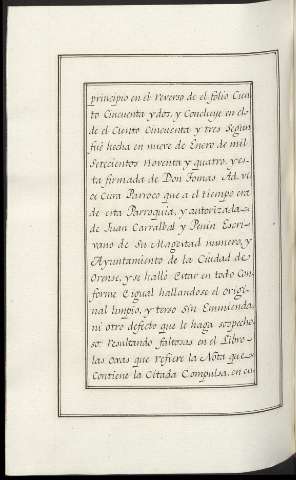 principio en el reverso de el folio Cien
to Cincuenta y dos, y Concluye en el
de el Ciento Cincuenta y tres Segun
fué hecha en nueve de Enero de mil
Setecientos Noventa y quatro, y es
ta firmada de Don Tomas
ce Cura Parroco que a el tiempo era
de esta Parroquia, y autorizada
de Juan Carralbal y Penin Escri
vano de Su Magestad numero, y
Ayuntamiento de la Ciudad de
Orense, y se halló Estar en todo Con
forme e igual hallandose el origi
nal limpio, y terso Sin Emmienda
ni otro defecto que le haga sospecho
so: resultando faltosas en el Libro
las Oxas que refiere la Nota que
Contiene la Citada Compulsa, en cu